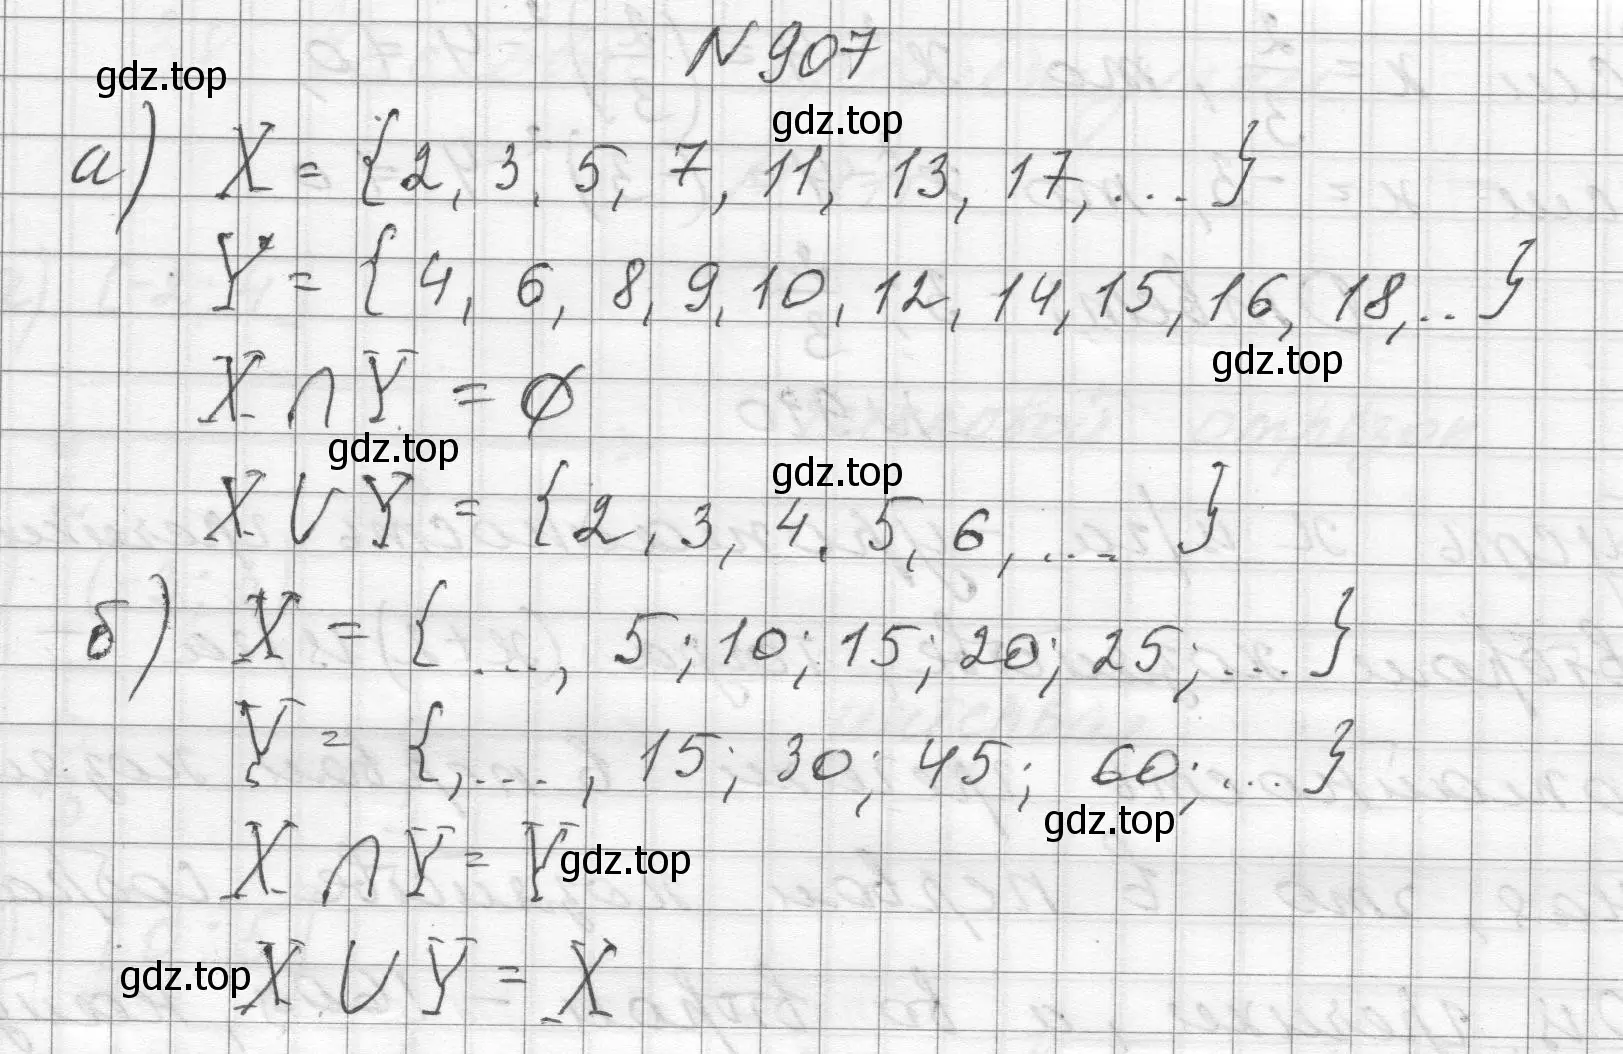 N 907
gdz.top
gdz.top
а) X = {2, 3, 5, 7, 11, 13, 17, ... }
Y = {4, 6, 8, 9, 10, 12, 14, 15, 16, 18, .. }
gdz.top
X ∩ Y = ∅
gdz.top
gdz.top
X ∪ Y = {2, 3, 4, 5, 6, .... }
б) X = {..., 5; 10; 15; 20; 25; ... }
Y = {, ...., 15; 30; 45; 60; ... }
gdz.top
X ∩ Y = Y
gdz.top
gdz.top
X ∪ Y = X